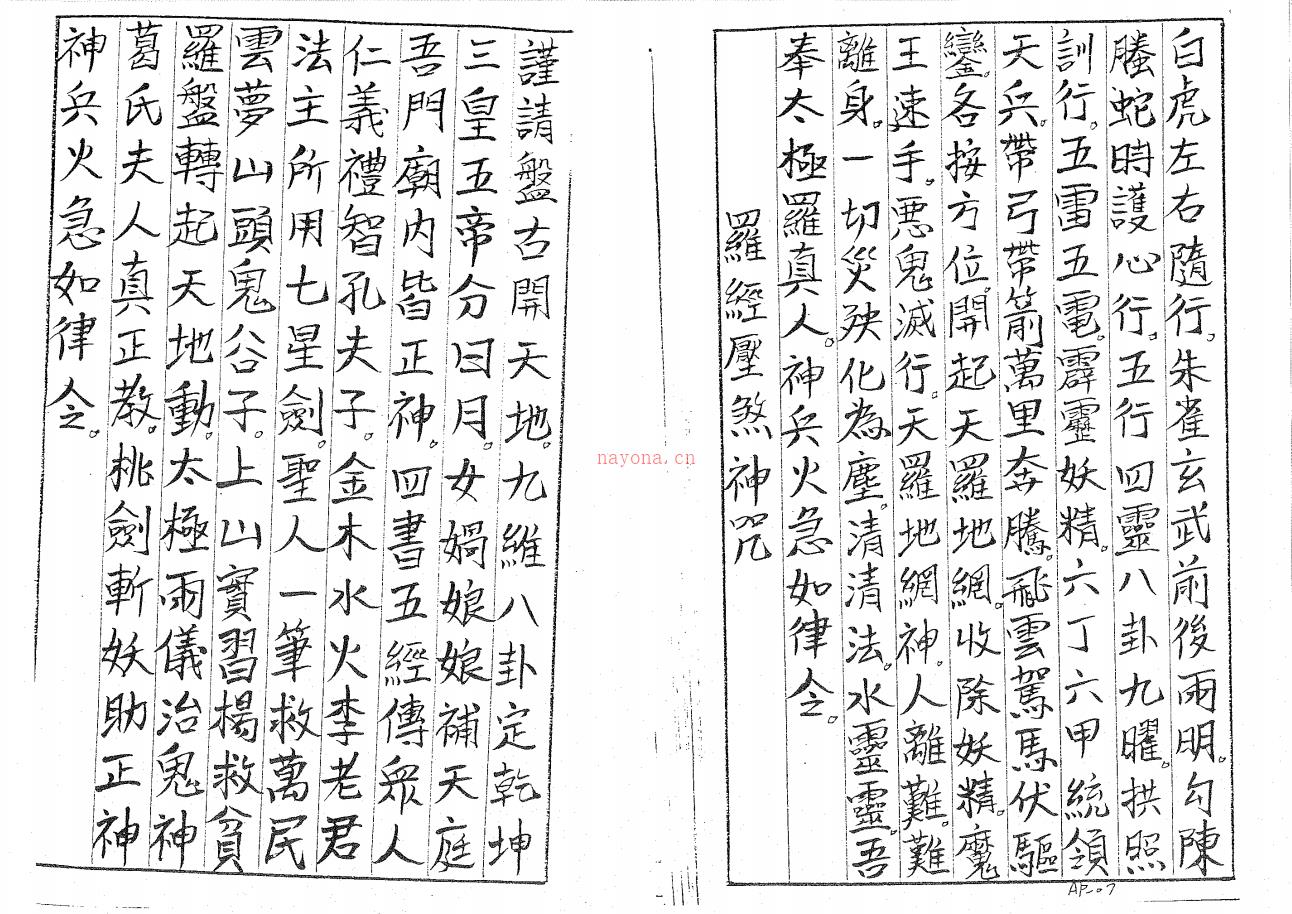 白虎左右隨行。朱雀玄武前後兩明。勾陳
騰蛇時護心行。五行四靈八卦九曜。拱照
訓行。五雷五電。霹靂妖精。六丁六甲統領
天兵。帶弓帶箭萬里奔騰。飛雲駕馬伏驅
鑾。各按方位。開起天羅地網。收除妖精。魔
王速手。惡鬼滅行。天羅地網神。人離難。難
離身。一切災殃化為塵。清清法。水靈靈。吾
奉太極羅真人。神兵火急如律令。
羅經壓煞神咒
謹請盤古開天地。九維八卦定乾坤
三皇五帝分日月。女媧娘娘補天庭
吾門廟内皆正神。四書五經傳眾人
仁義禮智孔夫子。金木水火李老君
法主所用七星劍。聖人一筆救萬民
雲夢山頭鬼谷子。上山實習楊救貧
羅盤轉起天地動。太極兩儀治鬼神
葛氏夫人真正教。桃劍斬妖助正神
神兵火急如律令。
nayona.cn
AP-07